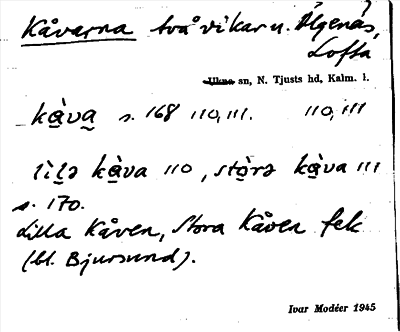 Kåvarna två vikar u. Älgenäs,
Lofta
Ukna sn, N. Tjusts hd, Kalm. l.
kà̱va̱ s. 168 110, 111. 110, 111
lìlə kà̱va 110, stòrə kà̱va 111
s. 170.
Lilla Kåven, Stora Kåven fek
(bl. Bjursund).
Ivar Modéer 1945